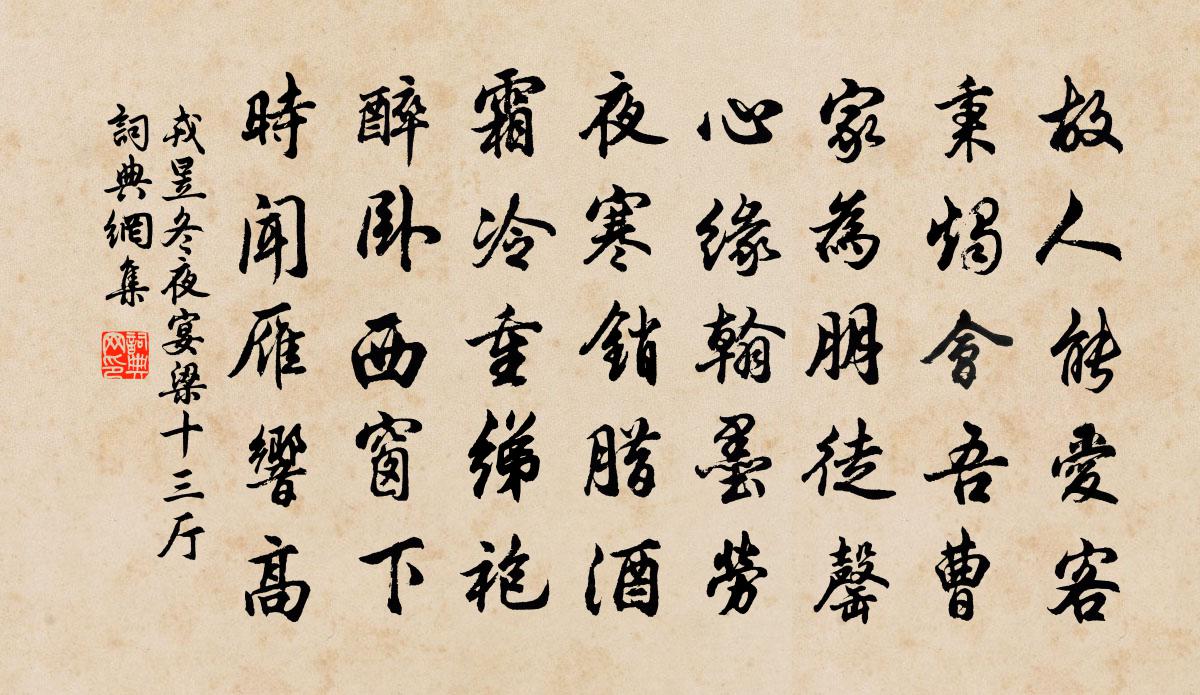 故人能愛客
秉燭會吾曹
家為朋徒罄
心緣翰墨勞
夜寒銷腊酒
霜冷重綈袍
醉卧西窗下
時聞雁響高
戎昱冬夜宴梁十三厅
詞典網集
詞典网印